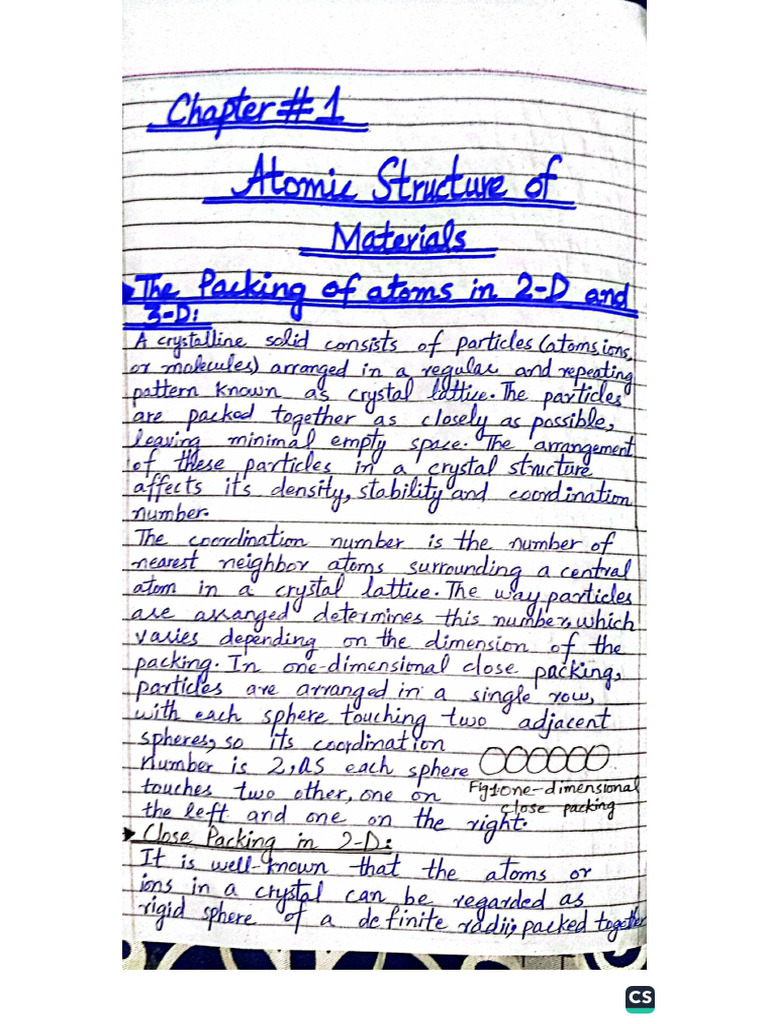 Chapter # 1
Atomic Structure of
Materials
The Packing of atoms in 2-D and
3-D:
A crystalline solid consists of particles (atoms, ions,
or molecules) arranged in a regular and repeating
pattern known as crystal lattice. The particles
are packed together as closely as possible,
leaving minimal empty space. The arrangement
of these particles in a crystal structure
affects its density, stability and coordination
number.
The coordination number is the number of
nearest neighbor atoms surrounding a central
atom in a crystal lattice. The way particles
are arranged determines this number, which
varies depending on the dimension of the
packing. In one-dimensional close packing,
particles are arranged in a single row,
with each sphere touching two adjacent
spheres, so its coordination
number is 2, as each sphere
touches two other, one on
the left and one on the right.
Fig1: one-dimensional
close packing
Close Packing in 2-D:
It is well-known that the atoms or
ions in a crystal can be regarded as
rigid sphere of a definite radii, packed together
CS